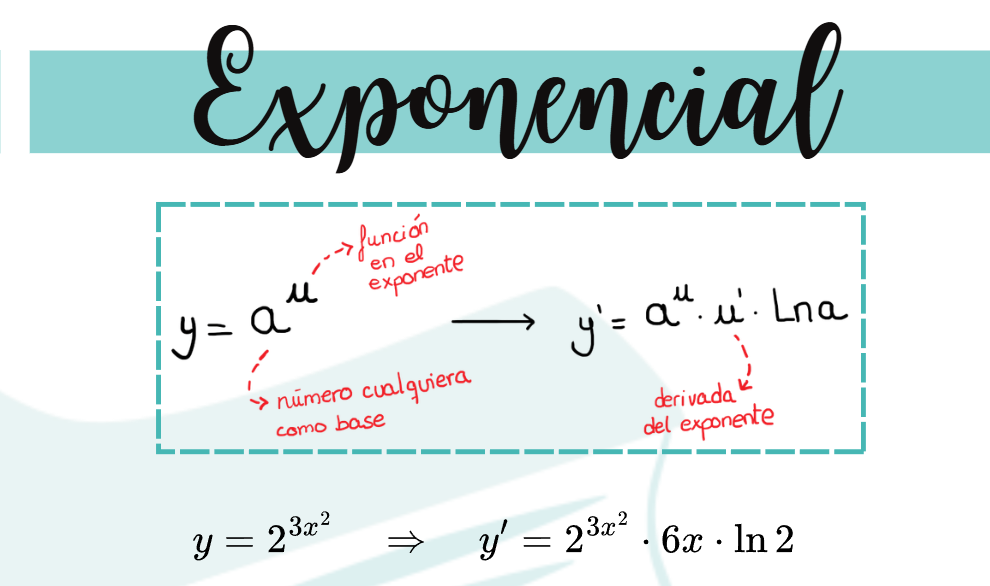 Exponencial
función
en el
exponente
y = a^u → y' = a^u · u' · Ln a
número cualquiera
como base
derivada
del exponente
y = 2^{3x^2} ⇒ y' = 2^{3x^2} · 6x · ln 2